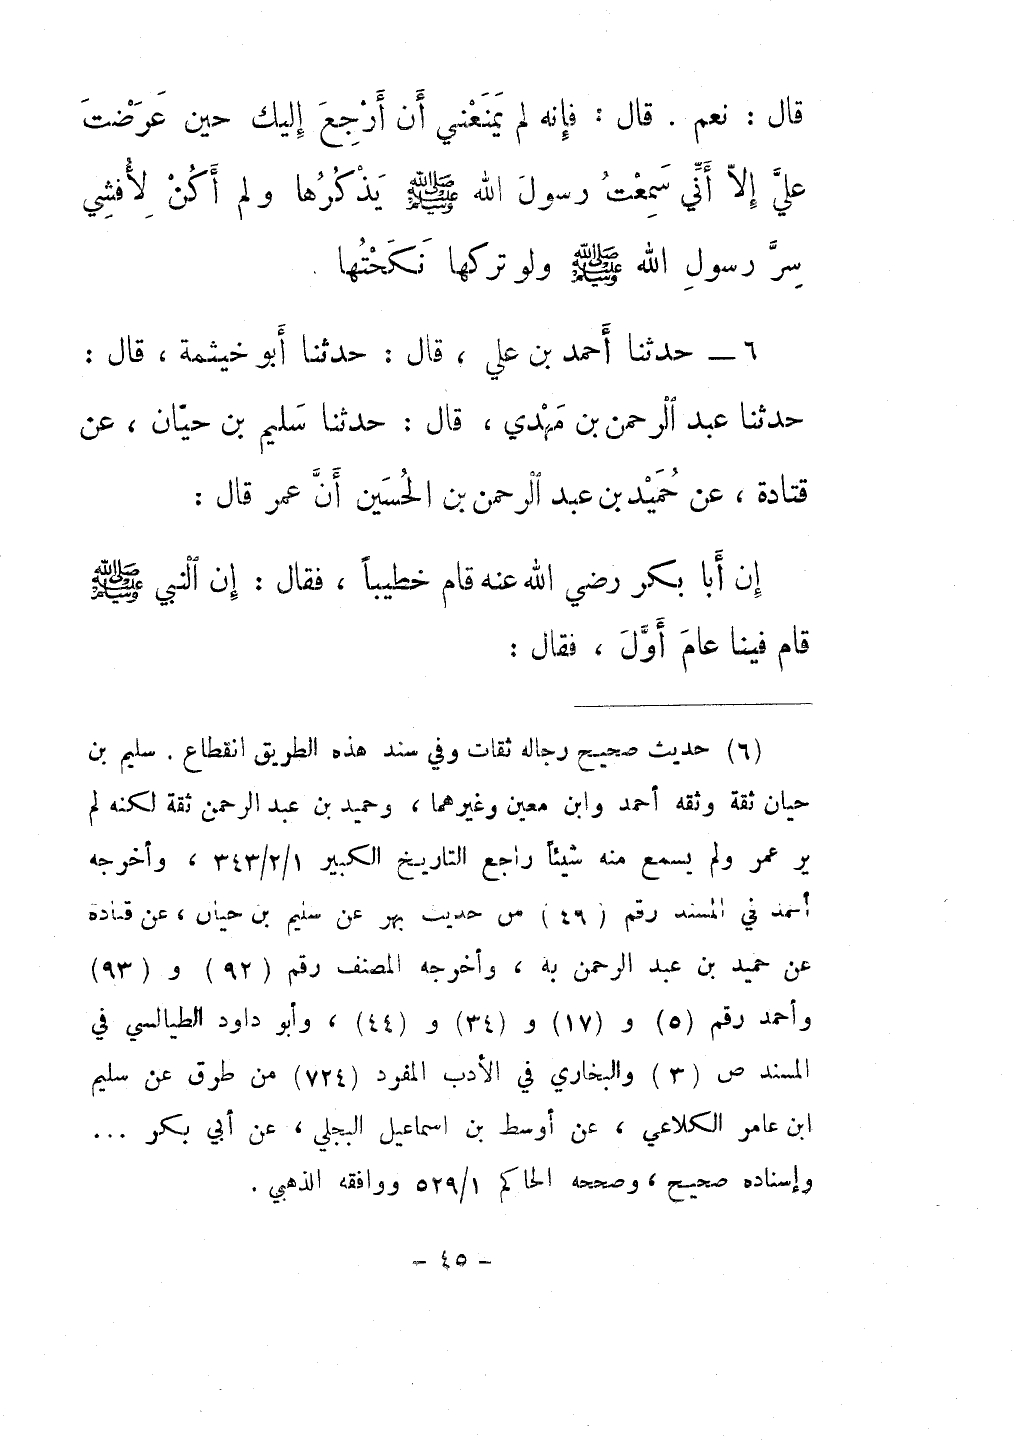 قال : نعم . قال : فإنه لم يَمَنَعْني أَن أَرْجِعَ إِليك حين عَرَضْتَ
عليَّ إِلاّ أَنِّي سَمِعْتُ رسولَ الله ﷺ يَذْكُرُها ولم أَكُنْ لِأُفشِي
سِرَّ رسولِ الله ﷺ ولو تركها نَكَحْتُها .
٦ — حدثنا أَحمد بن علي ، قال : حدثنا أَبو خيثمة ، قال :
حدثنا عبد الرحمن بن مَهْدي ، قال : حدثنا سَليم بن حيّان ، عن
قتادة ، عن حُمَيْد بن عبد الرحمن بن الحُسَين أَنَّ عمر قال :
إِن أَبا بكر رضي الله عنه قام خطيباً ، فقال : إِن النبي ﷺ
قام فينا عامَ أَوَّلَ ، فقال :
(٦) حديث صحيح رجاله ثقات وفي سند هذه الطريق انقطاع . سليم بن
حيان ثقة وثقه أحمد وابن معين وغيرهما ، وحميد بن عبد الرحمن ثقة لكنه لم
ير عمر ولم يسمع منه شيئاً راجع التاريخ الكبير ٣٤٣/٢/١ ، وأخرجه
أحمد في المسند رقم ( ٤٩ ) من حديث بهز عن سليم بن حيان ، عن قتادة
عن حميد بن عبد الرحمن به ، وأخرجه المصنف رقم ( ٩٢ ) و ( ٩٣ )
وأحمد رقم (٥) و (١٧) و (٣٤) و (٤٤) ، وأبو داود الطيالسي في
المسند ص ( ٣ ) والبخاري في الأدب المفرد (٧٢٤) من طرق عن سليم
ابن عامر الكلاعي ، عن أوسط بن اسماعيل البجلي ، عن أبي بكر ...
وإسناده صحيح ، وصححه الحاكم ٥٢٩/١ ووافقه الذهبي .
- ٤٥ -